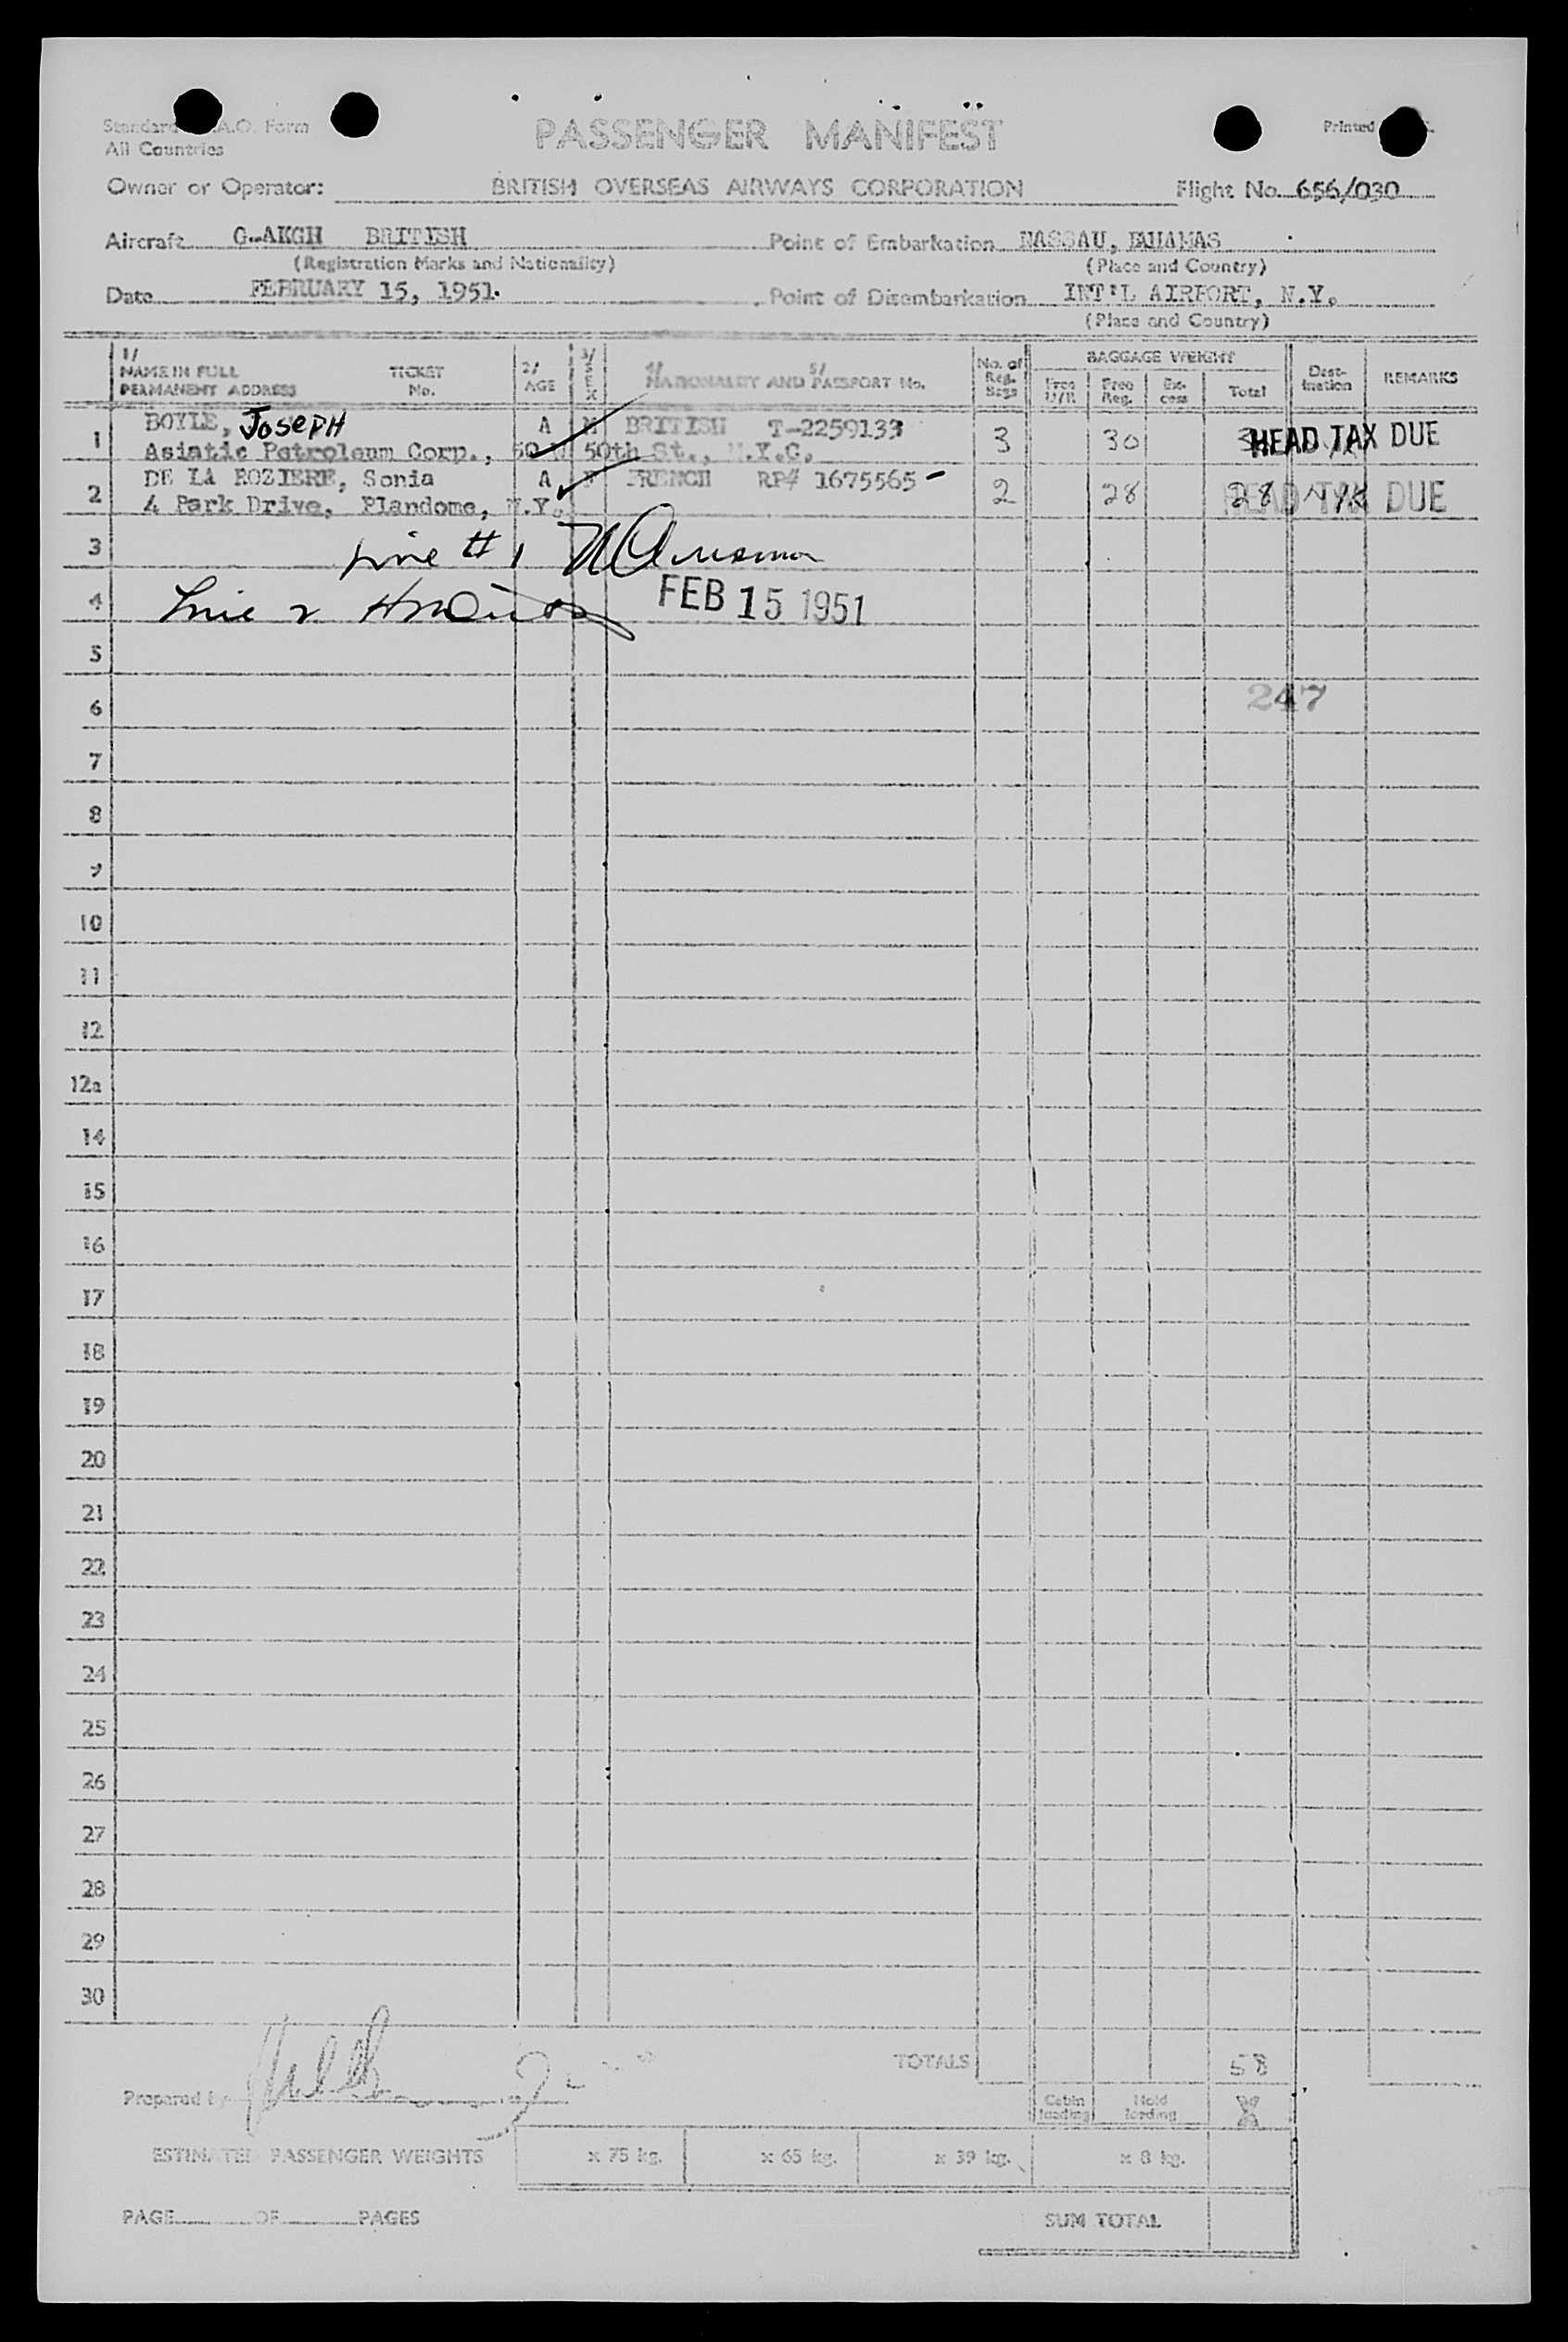 Standard A.O. Form
All Countries
PASSENGER MANIFEST
Printed
Owner or Operator: BRITISH OVERSEAS AIRWAYS CORPORATION Flight No. 656/030
Aircraft G-AKGH BRITISH Point of Embarkation NASSAU, BAHAMAS
(Registration Marks and Nationality) (Place and Country)
Date FEBRUARY 15, 1951. Point of Disembarkation INT'L AIRPORT, N.Y.
(Place and Country)
1/ NAME IN FULL PERMANENT ADDRESS TICKET No. 2/ AGE 3/ SEX 4/ 5/ NATIONALITY AND PASSPORT No. No. of Reg. Bags BAGGAGE WEIGHT Free U/R Free Reg. Ex-cess Total Dest-ination REMARKS
1 BOYLE, JOSEPH A M BRITISH T-2259133 3 30 HEAD TAX DUE
Asiatic Petroleum Corp., 50 50th St., N.Y.C.
2 DE LA ROZIERE, Sonia A F FRENCH RP# 1675565 2 28 28 NYK HEAD TAX DUE
4 Park Drive, Plandome, N.Y.
3 Line # 1
4 Line 2 FEB 15 1951
5
6 247
7
8
9
10
11
12
12a
14
15
16
17
18
19
20
21
22
23
24
25
26
27
28
29
30
TOTALS 58
Prepared by
Cabin loading Hold loading
ESTIMATED PASSENGER WEIGHTS x 75 kg. x 65 kg. x 39 kg. x 8 kg.
PAGE OF PAGES SUM TOTAL